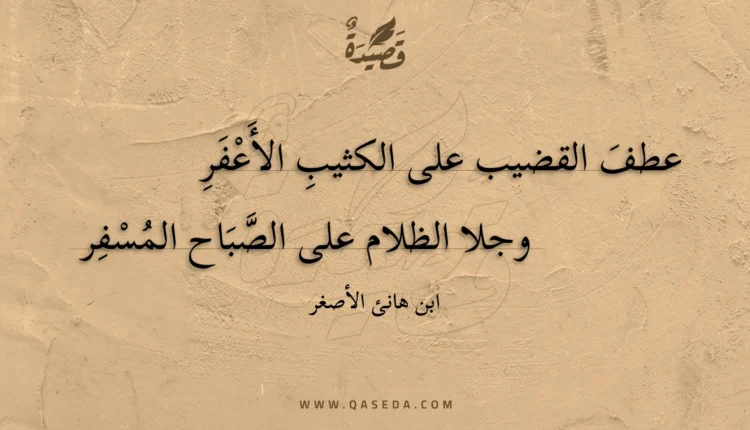 قَصِيْدَةٌ
عطفَ القضيب على الكثيبِ الأَعْفَرِ
وجلا الظلام على الصَّبَاح المُسْفِر
ابن هانئ الأصغر
WWW.QASEDA.COM